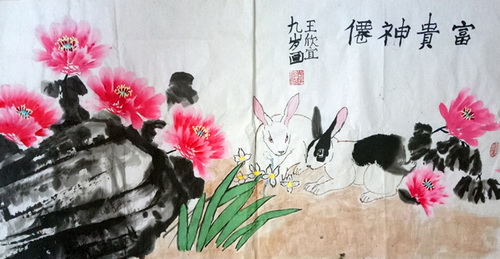 富貴神僊
王欣宜
九岁画